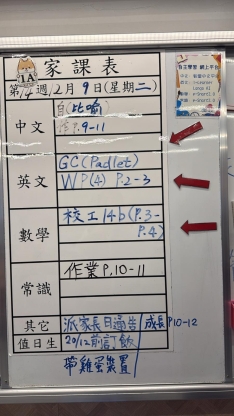 1A
家課表
第14週12月9日(星期二)
中文
自(比喻)
作P.9-11
英文
GC(Padlet)
WP(4) P.2-3
數學
校工14b(P.3-
P.4)
常識
作業P.10-11
其它
派家長日通告 成長P10-12
值日生
帶雞蛋裝置
自主學習 網上平台